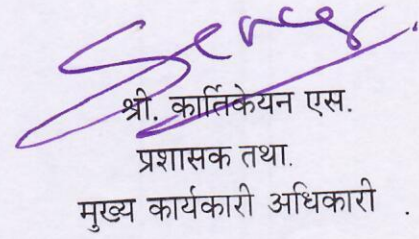 श्री. कार्तिकेयन एस.
प्रशासक तथा.
मुख्य कार्यकारी अधिकारी .